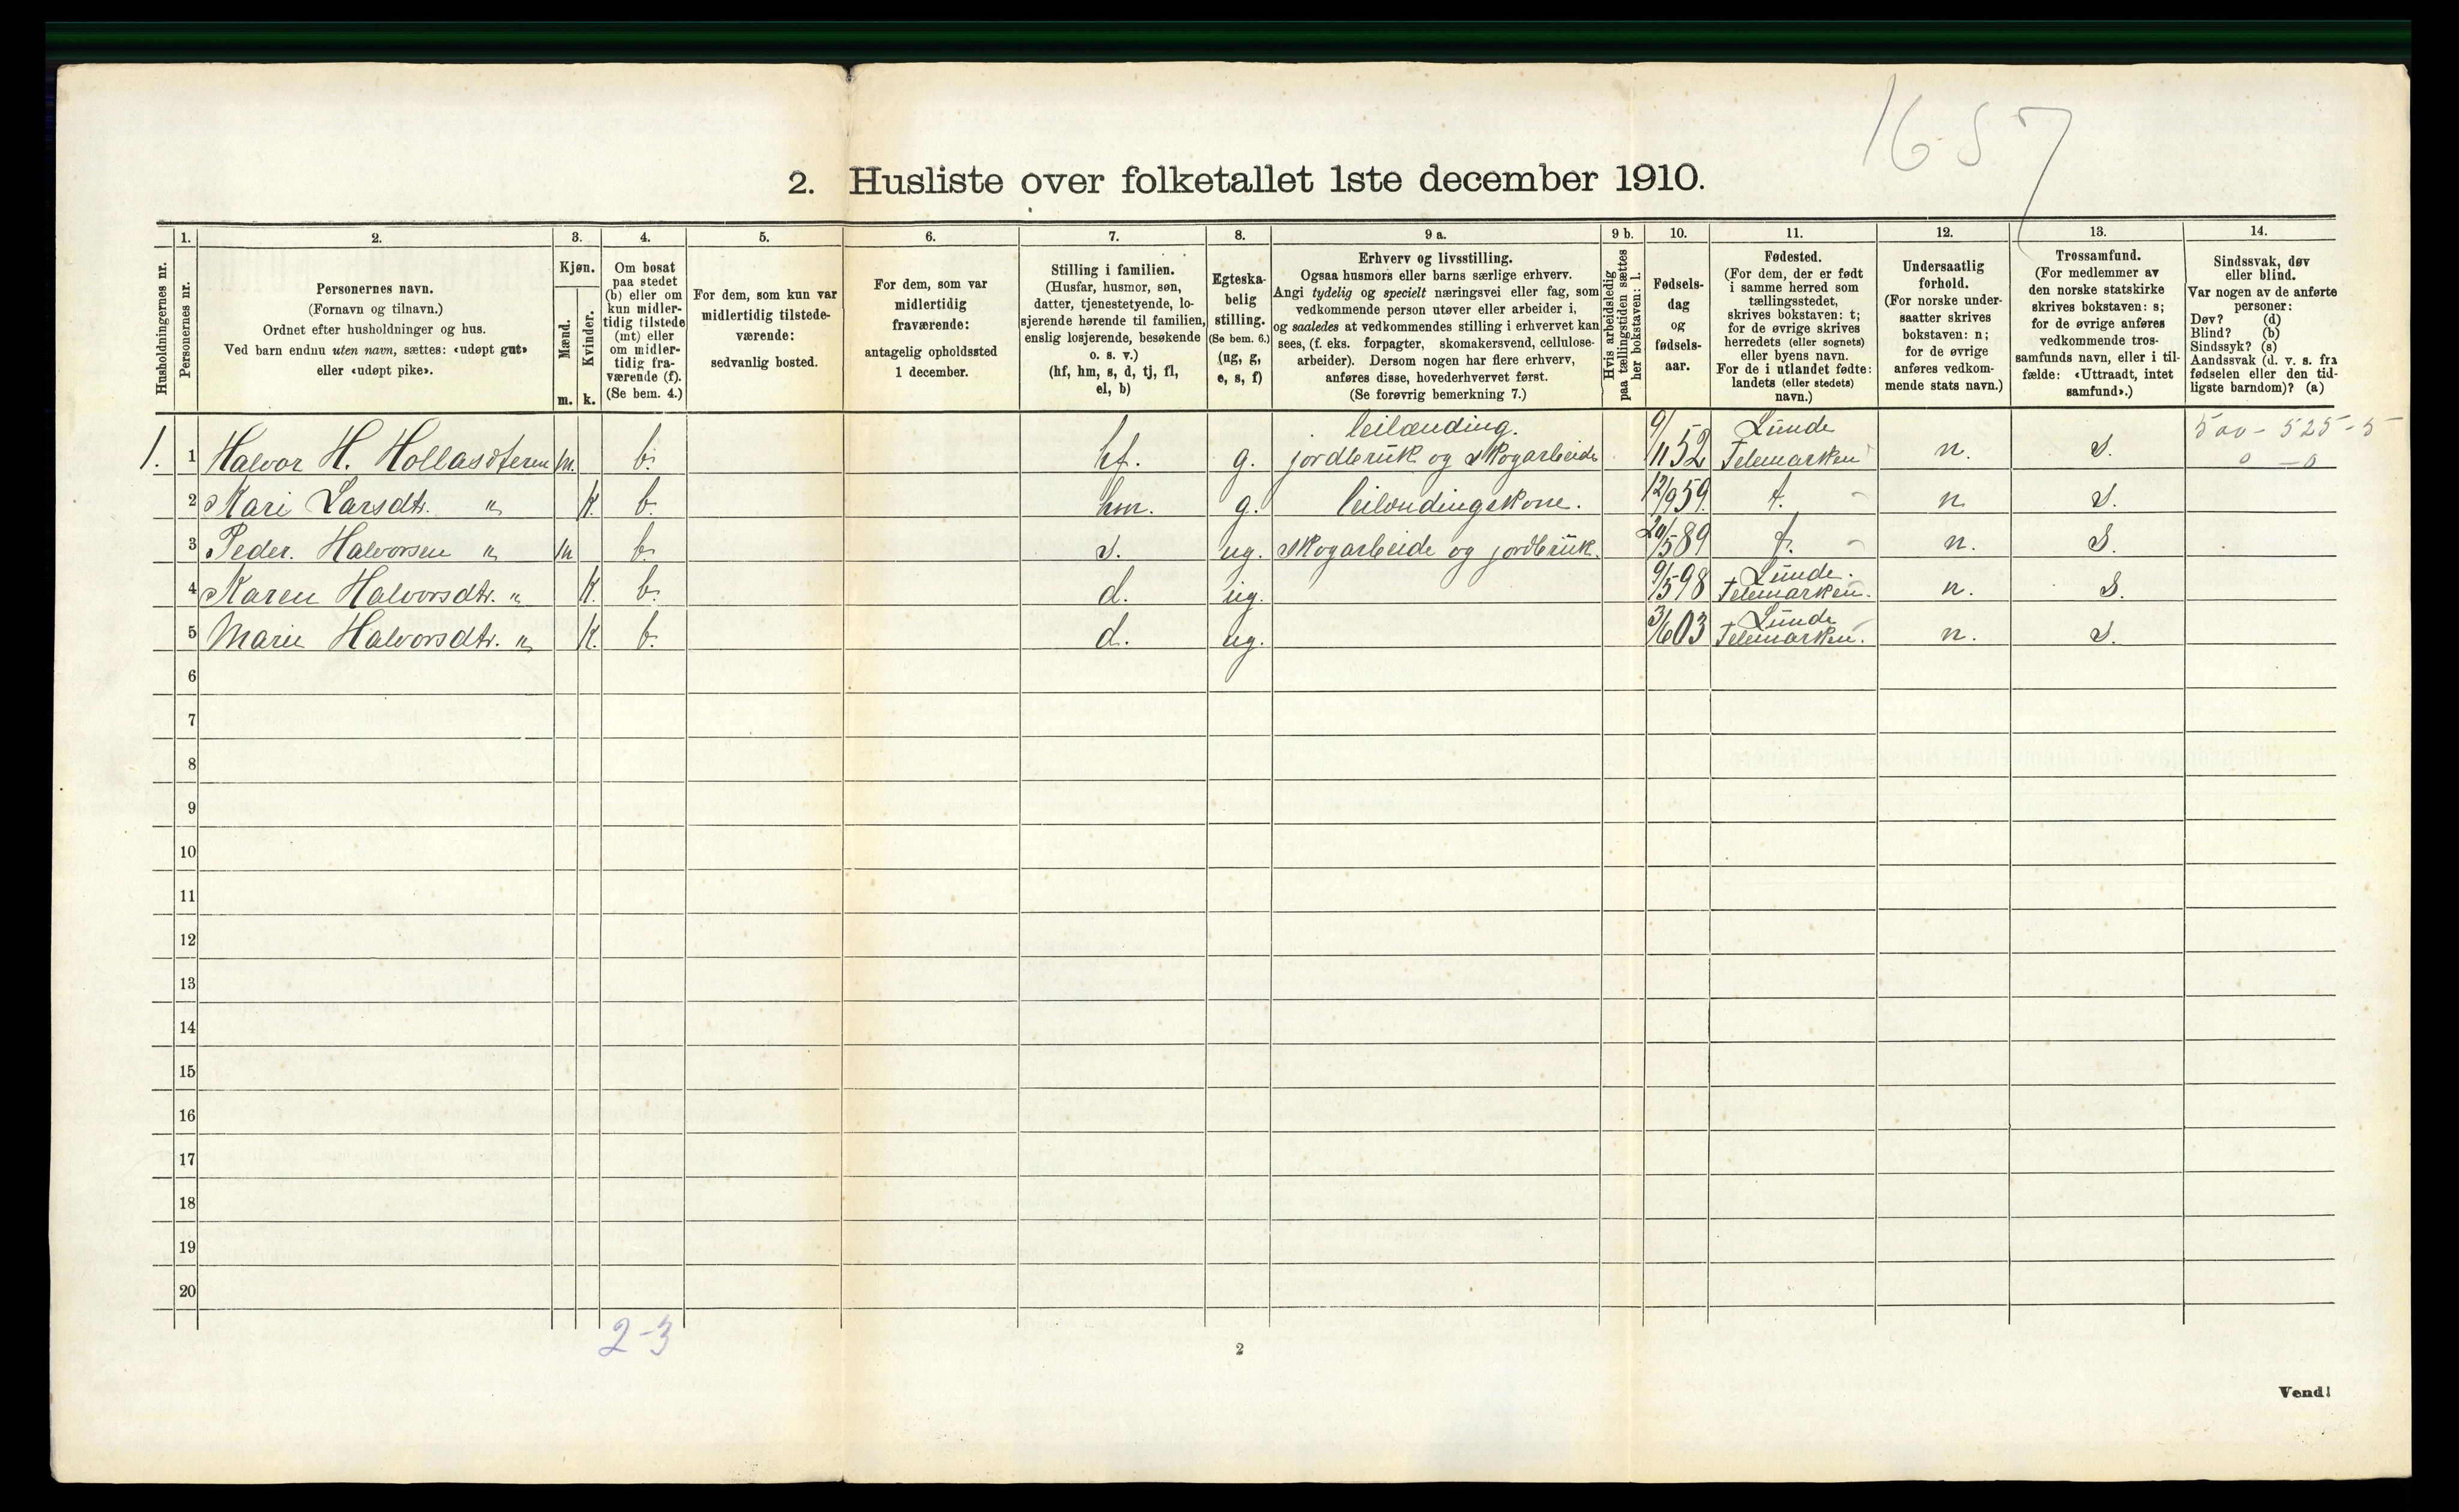 1657
2. Husliste over folketallet 1ste december 1910.
Husholdningernes nr.
1.
Personernes nr.
2.
Personernes navn.
(Fornavn og tilnavn.)
Ordnet efter husholdninger og hus.
Ved barn endnu uten navn, sættes: «udøpt gut»
eller «udøpt pike».
3.
Kjøn.
Mænd.
Kvinder.
m. k.
4.
Om bosat
paa stedet
(b) eller om
kun midler-
tidig tilstede
(mt) eller
om midler-
tidig fra-
værende (f).
(Se bem. 4.)
5.
For dem, som kun var
midlertidig tilstede-
værende:
sedvanlig bosted.
6.
For dem, som var
midlertidig
fraværende:
antagelig opholdssted
1 december.
7.
Stilling i familien.
(Husfar, husmor, søn,
datter, tjenestetyende, lo-
sjerende hørende til familien,
enslig losjerende, besøkende
o. s. v.)
(hf, hm, s, d, tj, fl,
el, b)
8.
Egteska-
belig
stilling.
(Se bem. 6.)
(ug, g,
e, s, f)
9 a.
Erhverv og livsstilling.
Ogsaa husmors eller barns særlige erhverv.
Angi tydelig og specielt næringsvei eller fag, som
vedkommende person utøver eller arbeider i,
og saaledes at vedkommendes stilling i erhvervet kan
sees, (f. eks. forpagter, skomakersvend, cellulose-
arbeider). Dersom nogen har flere erhverv,
anføres disse, hovederhvervet først.
(Se forøvrig bemerkning 7.)
9 b.
Hvis arbeidsledig
paa tællingstiden sættes
her bokstaven: l.
10.
Fødsels-
dag
og
fødsels-
aar.
11.
Fødested.
(For dem, der er født
i samme herred som
tællingsstedet,
skrives bokstaven: t;
for de øvrige skrives
herredets (eller sognets)
eller byens navn.
For de i utlandet fødte:
landets (eller stedets)
navn.)
12.
Undersaatlig
forhold.
(For norske under-
saatter skrives
bokstaven: n;
for de øvrige
anføres vedkom-
mende stats navn.)
13.
Trossamfund.
(For medlemmer av
den norske statskirke
skrives bokstaven: s;
for de øvrige anføres
vedkommende tros-
samfunds navn, eller i til-
fælde: «Uttraadt, intet
samfund».)
14.
Sindssvak, døv
eller blind.
Var nogen av de anførte
personer:
Døv? (d)
Blind? (b)
Sindssyk? (s)
Aandssvak (d. v. s. fra
fødselen eller den tid-
ligste barndom)? (a)
leilænding. Lunde 500 - 525 - 5
1. 1 Halvor H. Hollasæteren m. b. hf. g. jordbruk og skogarbeide 9/11 52 Telemarken n. s. 0 - 0
2 Kari Larsdtr. " k. b. hm. g. leilændingskone. 12/9 59. t. n s.
3 Peder. Halvorsen " m b. s. ug. skogarbeide og jordbruk. 20/5 89 t. n. s.
Lunde.
4 Karen Halvorsdtr. " k. b. d. ug. 9/5 98 Telemarken. n. s.
Lunde
5 Marie Halvorsdtr. " k. b. d. ug. 3/6 03 Telemarken. n. s.
6
7
8
9
10
11
12
13
14
15
16
17
18
19
20
2-3
2
Vend!